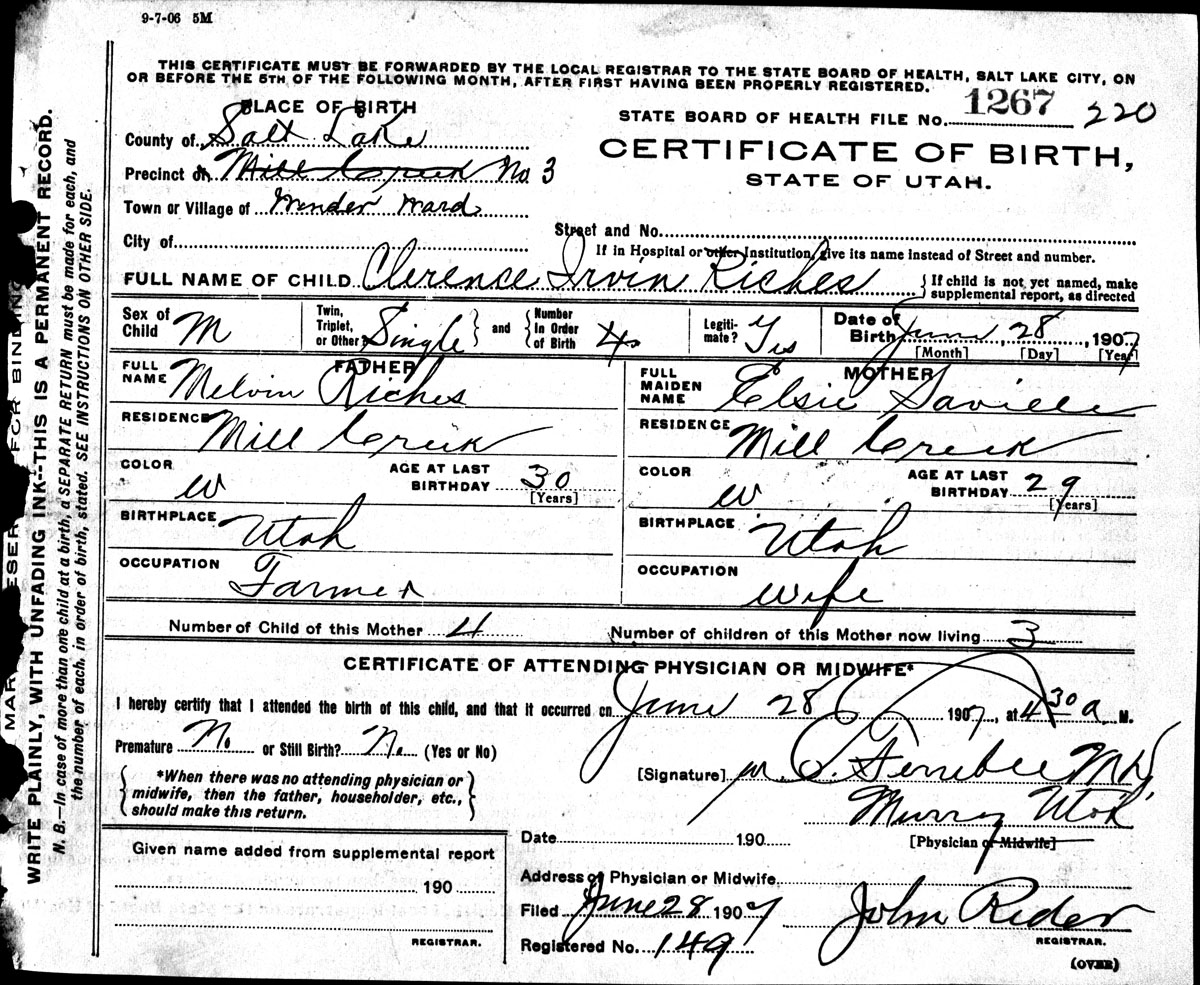 9-7-06 5M
THIS CERTIFICATE MUST BE FORWARDED BY THE LOCAL REGISTRAR TO THE STATE BOARD OF HEALTH, SALT LAKE CITY, ON
OR BEFORE THE 5TH OF THE FOLLOWING MONTH, AFTER FIRST HAVING BEEN PROPERLY REGISTERED.
PLACE OF BIRTH
STATE BOARD OF HEALTH FILE No. 1267 220
County of Salt Lake
CERTIFICATE OF BIRTH,
Precinct or Mill Creek No 3
STATE OF UTAH.
Town or Village of Winder Ward
Street and No.
City of
If in Hospital or other Institution, give its name instead of Street and number.
FULL NAME OF CHILD Clerence Irvin Riches { If child is not yet named, make
supplemental report, as directed
Sex of Child M
Twin, Triplet, or Other? Single } and { Number In Order of Birth 4
Legiti-mate? Yes
Date of Birth June, 28, 1907
[Month] [Day] [Year]
FATHER
FULL NAME Melvin Riches
MOTHER
FULL MAIDEN NAME Elsie Saville
RESIDENCE Mill Creek
RESIDENCE Mill Creek
COLOR W
AGE AT LAST BIRTHDAY 30
[Years]
COLOR W
AGE AT LAST BIRTHDAY 29
[Years]
BIRTHPLACE Utah
BIRTHPLACE Utah
OCCUPATION Farmer
OCCUPATION Wife
Number of Child of this Mother 4
Number of children of this Mother now living 3
CERTIFICATE OF ATTENDING PHYSICIAN OR MIDWIFE*
I hereby certify that I attended the birth of this child, and that it occurred on June 28 1907, at 4 30 a. M.
Premature No or Still Birth? No (Yes or No)
{ *When there was no attending physician or
midwife, then the father, householder, etc.,
should make this return. }
[Signature] Ferrebee MD,
Murray Utah
Date 190
[Physician or Midwife]
Given name added from supplemental report
190
REGISTRAR.
Address of Physician or Midwife
Filed June 28 1907 John Rider
REGISTRAR.
Registered No. 149
(OVER)
WRITE PLAINLY, WITH UNFADING INK--THIS IS A PERMANENT RECORD.
N. B.—In case of more than one child at a birth, a SEPARATE RETURN must be made for each, and
the number of each, in order of birth, stated. SEE INSTRUCTIONS ON OTHER SIDE.
FOR BINDING